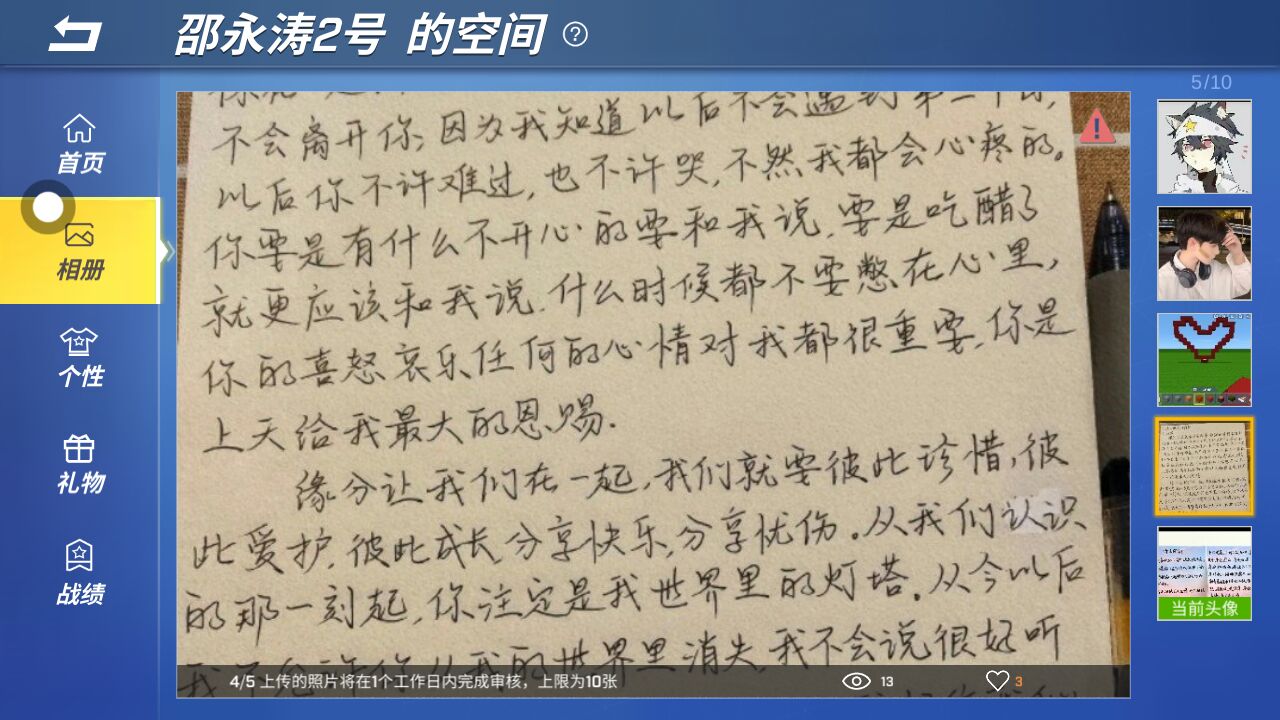 邵永涛2号 的空间 ?
5/10
首页
相册
个性
礼物
战绩
不会离开你,因为我知道以后不会遇到第二个你,
以后你不许难过,也不许哭,不然我都会心疼的。
你要是有什么不开心的要和我说,要是吃醋了
就更应该和我说.什么时候都不要憋在心里,
你的喜怒哀乐任何的心情对我都很重要,你是
上天给我最大的恩赐.
缘分让我们在一起,我们就要彼此珍惜,彼
此爱护,彼此成长,分享快乐,分享忧伤。从我们认识
的那一刻起,你注定是我世界里的灯塔。从今以后
我不允许你从我的世界里消失,我不会说很好听
4/5 上传的照片将在1个工作日内完成审核,上限为10张
13
3
当前头像